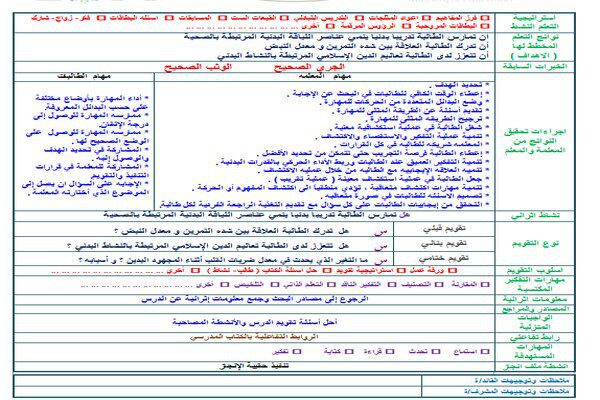 استراتيجية التعلم النشط
□ فرز المفاهيم □ اعواد المثلجات □ التدريس التبادلي □ القبعات الست □ المسابقات □ اسئلة البطاقات □ فكر - زواج - شارك
□ البطاقات المروحية □ الرؤوس المرقمة □ أخرى
نواتج التعلم المخطط لها ( الاهداف )
ان تمارس الطالبة تدريبا بدنيا ينمي عناصر اللياقة البدنية المرتبطة بالصحية
أن تدرك الطالبة العلاقة بين شده التمرين و معدل النبض
أن تتعزز لدى الطالبة تعاليم الدين الإسلامي المرتبطة بالنشاط البدني
الخبرات السابقة
الجري الصحيح الوثب الصحيح
اجراءات تحقيق النواتج من المعلمة والمعلم
مهام المعلمه
* تحديد الهدف .
* إعطاء الوقت الكافي للطالبات في البحث عن الإجابة .
* وضع البدائل المتعددة من الحركات للمهارة .
* تقديم أسئلة عن الطريقة المثلى للمهارة .
* ترجيح الطريقه المثلى للمهارة .
* شغل الطالبة في عملية استكشافية معينة .
* تنمية عملية التفكير والاستقصاء والاكتشاف .
* المعلمه شريكه للطالبه في كل القرارات .
* إعطاء الطالبة فرصة التجريب حتى تتمكن من تحديد الأفضل.
* تنمية التفكير العميق عند الطالبات وربط الأداء الحركي بالقدرات البدنية .
* تنميه العلاقه الإيجابيه مع الطالبه من خلال عمليه الاكتشاف .
* جعل الطالبة في عملية استكشاف معينة ( عملية تقريب ) .
* تنمية مهارات اكتشاف متعاقبة ، تؤدي منطقياً الى اكتشاف المفهوم أو الحركة .
* تصميم الاسئله للطالبات في صورة متعاقبه .
* التحقق من إيجابيات الطالبات على كل سؤال مع تقديم التغذية الراجعة الفردية لكل طالبة.
مهام الطالبات
* أداء المهارة بأوضاع مختلفة على حسب البدائل المعروفة.
* ممارسه المهارة للوصول إلى درجة الإتقان.
* ممارسة المهارة للوصول على الوضع الصحيح لها .
* المشاركة في تحديد الهدف والوصول إليه.
* المشاركة للمعلمة في قرارات التنفيذ والتقويم
* الإجابه على السؤال ان يصل إلى الموضوع الذي اختارته المعلمة .
نشاط اثرائي
هل تمارس الطالبة تدريبا بدنيا ينمي عناصر اللياقة البدنية المرتبطة بالصحية
نوع التقويم
تقويم قبلي س هل تدرك الطالبة العلاقة بين شده التمرين و معدل النبض ؟
تقويم بنائي س هل تتعزز لدى الطالبة تعاليم الدين الإسلامي المرتبطة بالنشاط البدني ؟
تقويم ختامي س ما التغير الذي يحدث في معدل ضربات القلب أثناء المجهود البدني ؟ و أسبابه ؟
اسلوب التقويم
□ ورقة عمل □ استراتيجية تقويم □ حل اسئلة الكتاب ( طالب - نشاط ) □ أخرى
مهارات التفكير المكتسبة
□ المقارنة □ التصنيف □ التفكير الناقد □ التعلم الذاتي □ التلخيص □ أخرى
معلومات اثرائية
الرجوع إلى مصادر البحث وجمع معلومات إثرائية عن الدرس
المصادر والمراجع
الواجبات المنزلية
أحل أسئلة تقويم الدرس والأنشطة المصاحبة
رابط تفاعلي
الروابط التفاعلية بالكتاب المدرسي
المهارات المستهدفة
□ استماع □ تحدث □ قراءة □ كتابة □ تفكير
انشطة ملف انجاز
تنفيذ حقيبة الإنجاز
ملاحظات وتوجيهات القائد/ة
ملاحظات وتوجيهات المشرف/ة